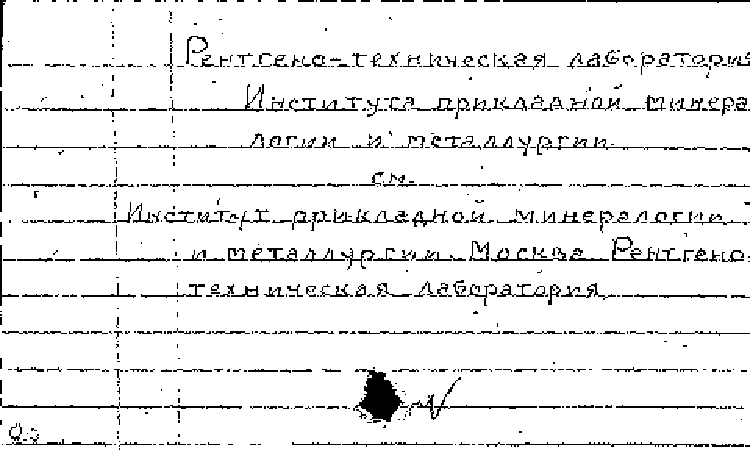 Рентгено-техническая лаборатория
Института прикладной минера
логии и металлургии
см.
Институт прикладной минералогии
и металлургии. Москва. Рентгено-
техническая лаборатория